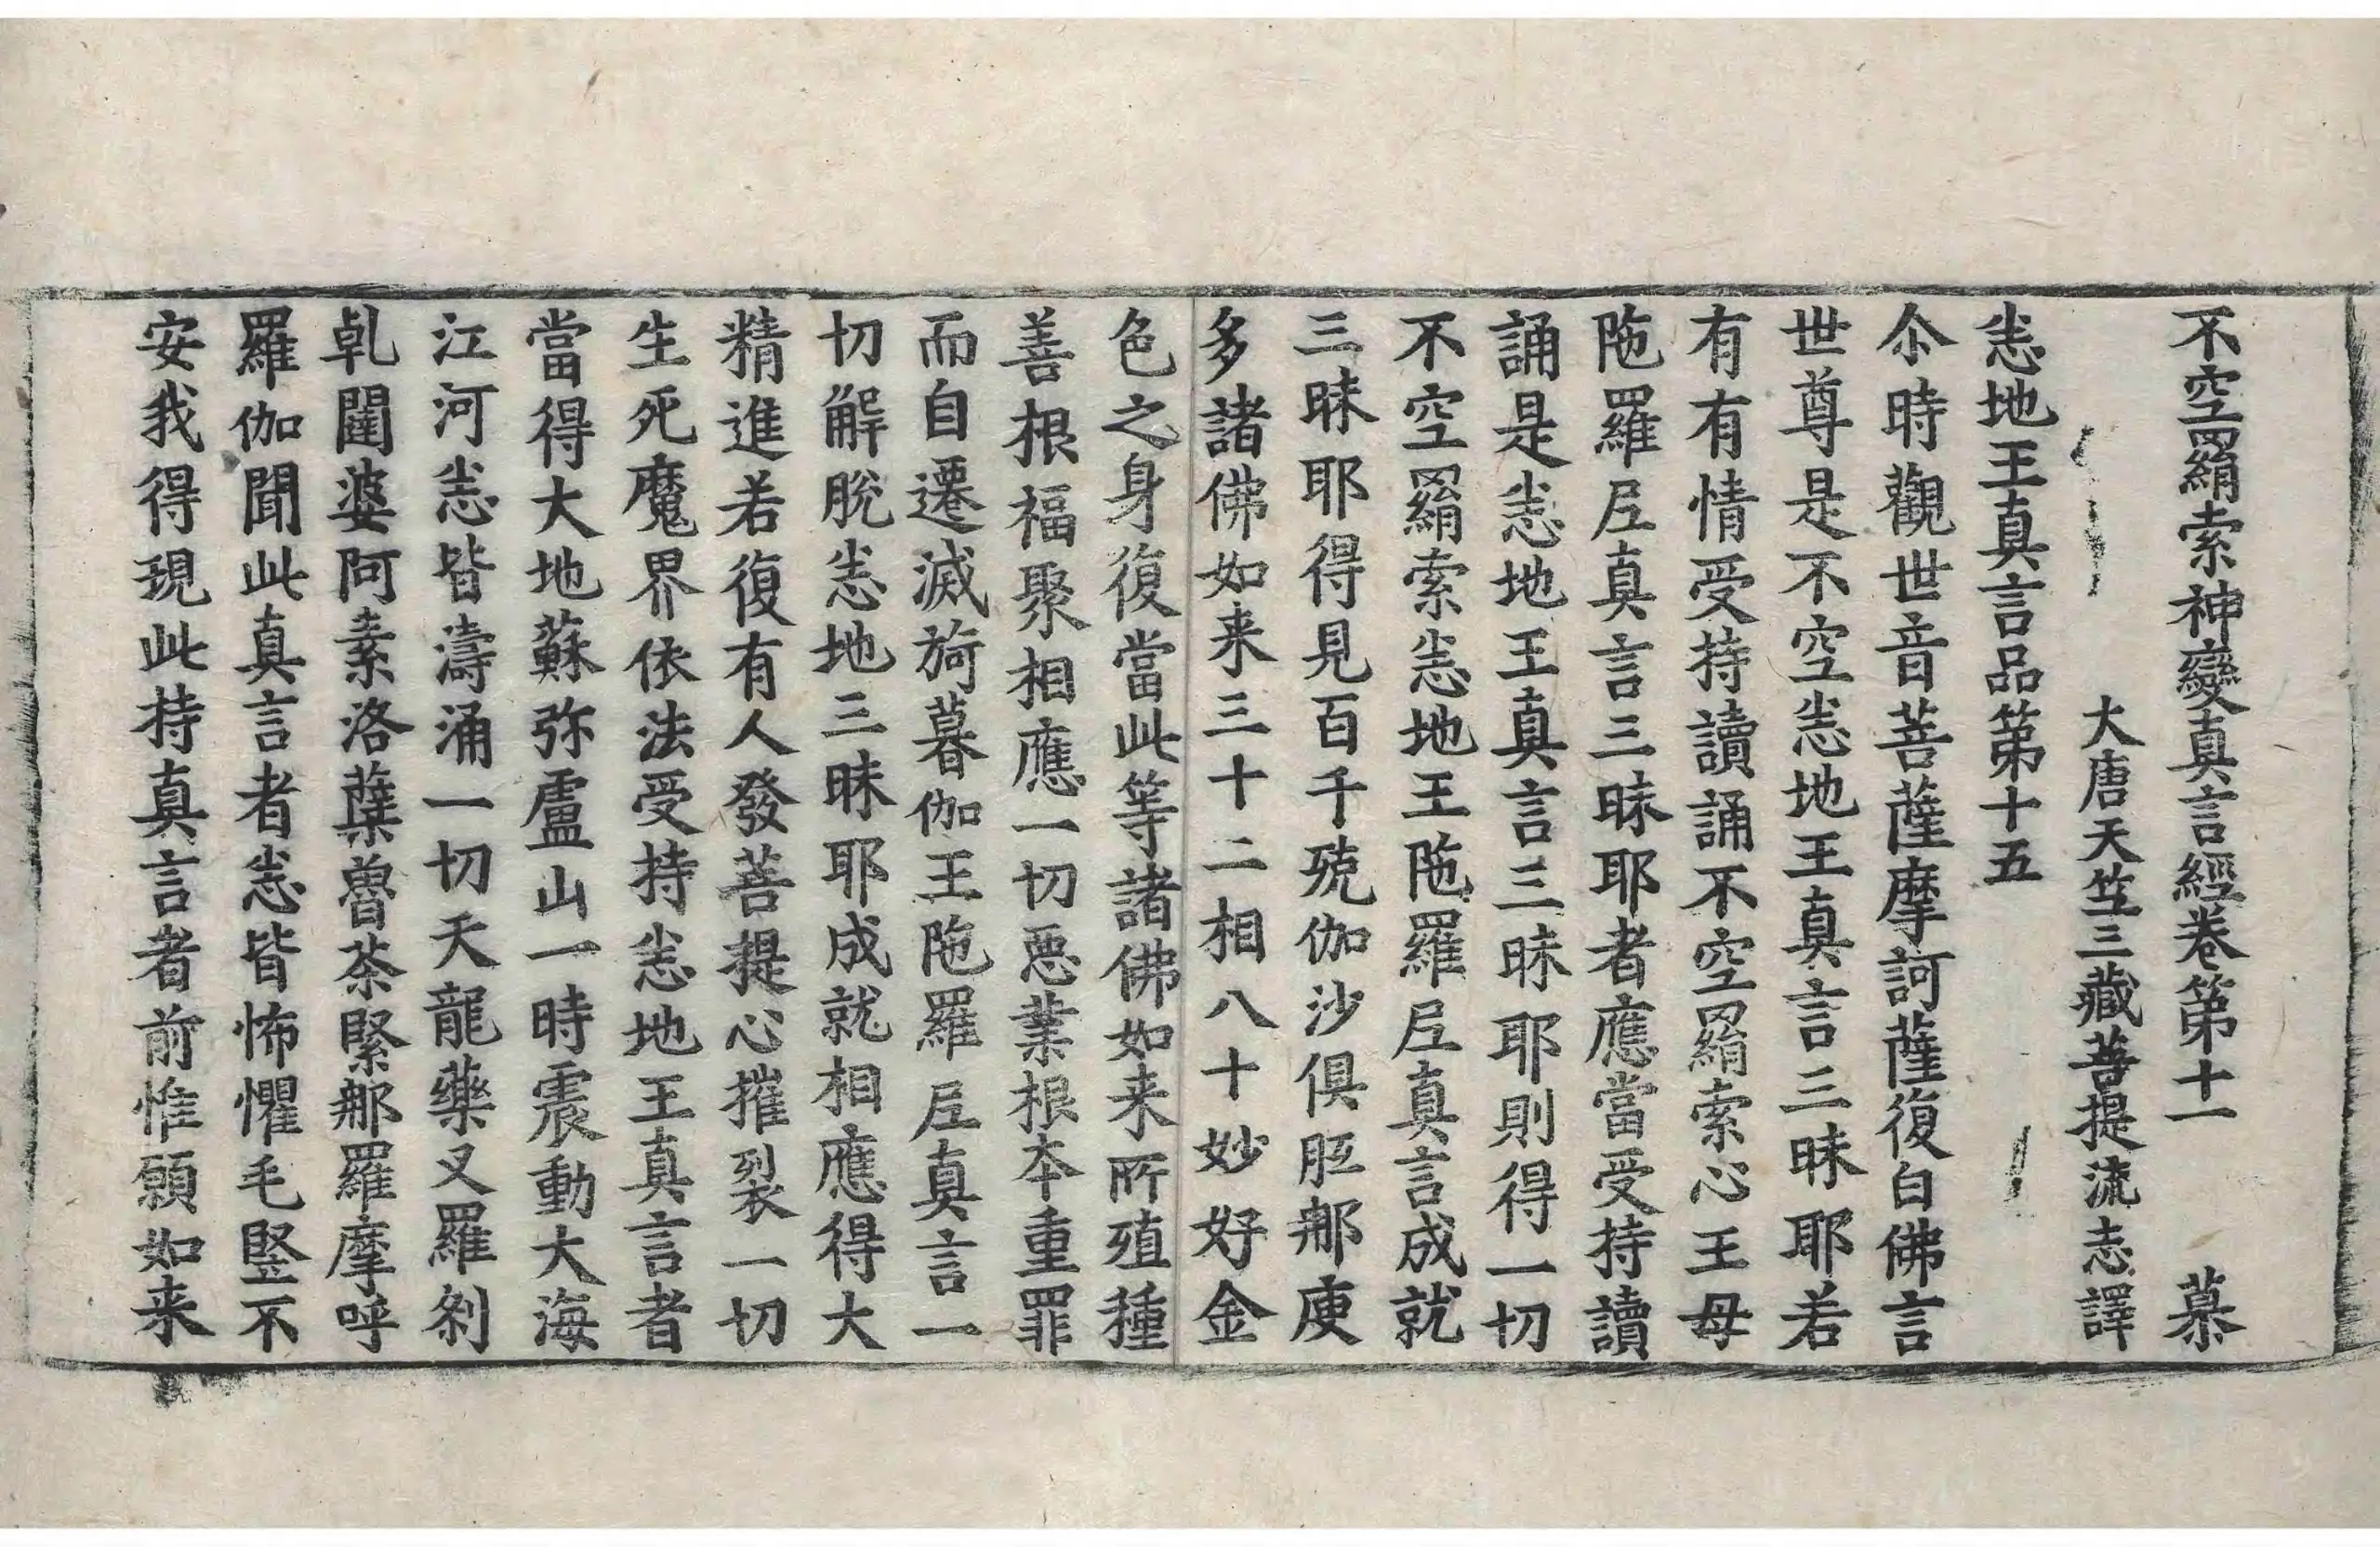 不空羂索神變真言經卷第十一 慕
大唐天竺三藏菩提流志譯
悉地王真言品第十五
尒時觀世音菩薩摩訶薩復白佛言
世尊是不空悉地王真言三昧耶若
有有情受持讀誦不空羂索心王母
陁羅尼真言三昧耶者應當受持讀
誦是悉地王真言三昧耶則得一切
不空羂索悉地王陁羅尼真言成就
三昧耶得見百千殑伽沙俱胝那庾
多諸佛如来三十二相八十妙好金
色之身復當此等諸佛如来所殖種
善根福聚相應一切惡業根本重罪
而自遷滅旖暮伽王陁羅尼真言一
切解脫悉地三昧耶成就相應得大
精進若復有人發菩提心摧裂一切
生死魔界依法受持悉地王真言者
當得大地蘇弥盧山一時震動大海
江河悉皆濤涌一切天龍藥叉羅剎
乹闥婆阿素洛蘖魯荼緊那羅摩呼
羅伽聞此真言者悉皆怖懼毛竪不
安我得現此持真言者前惟願如来